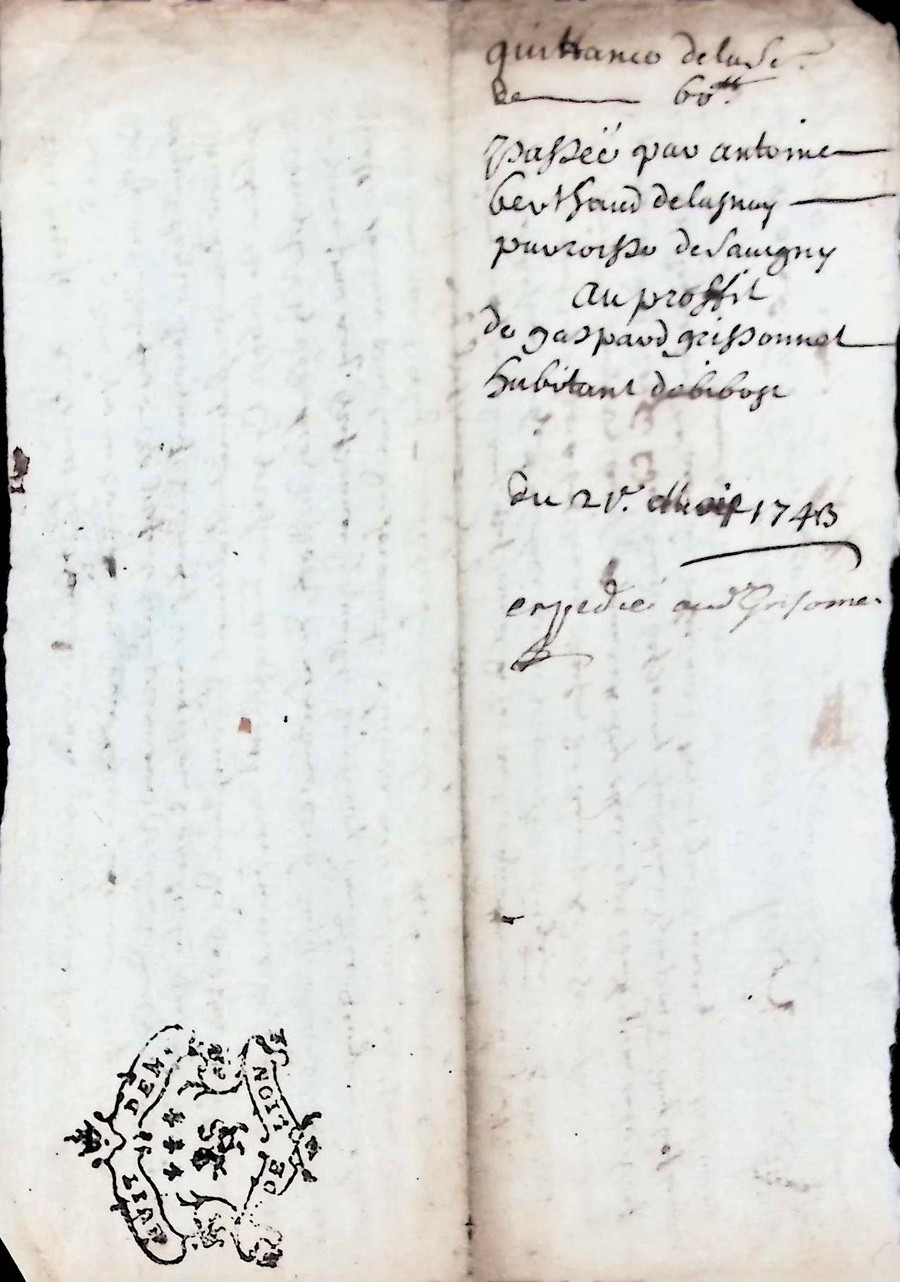 quittance de la So.e
de 60tt
passéé par antoine
berthaud delagnay
parroisse de Sauigny
au proffit
de gaspard grissonnet
habitant debibost
du 21e. Mai 1743
expediéé aud Grisonne
HUIT DEN.
DE LION